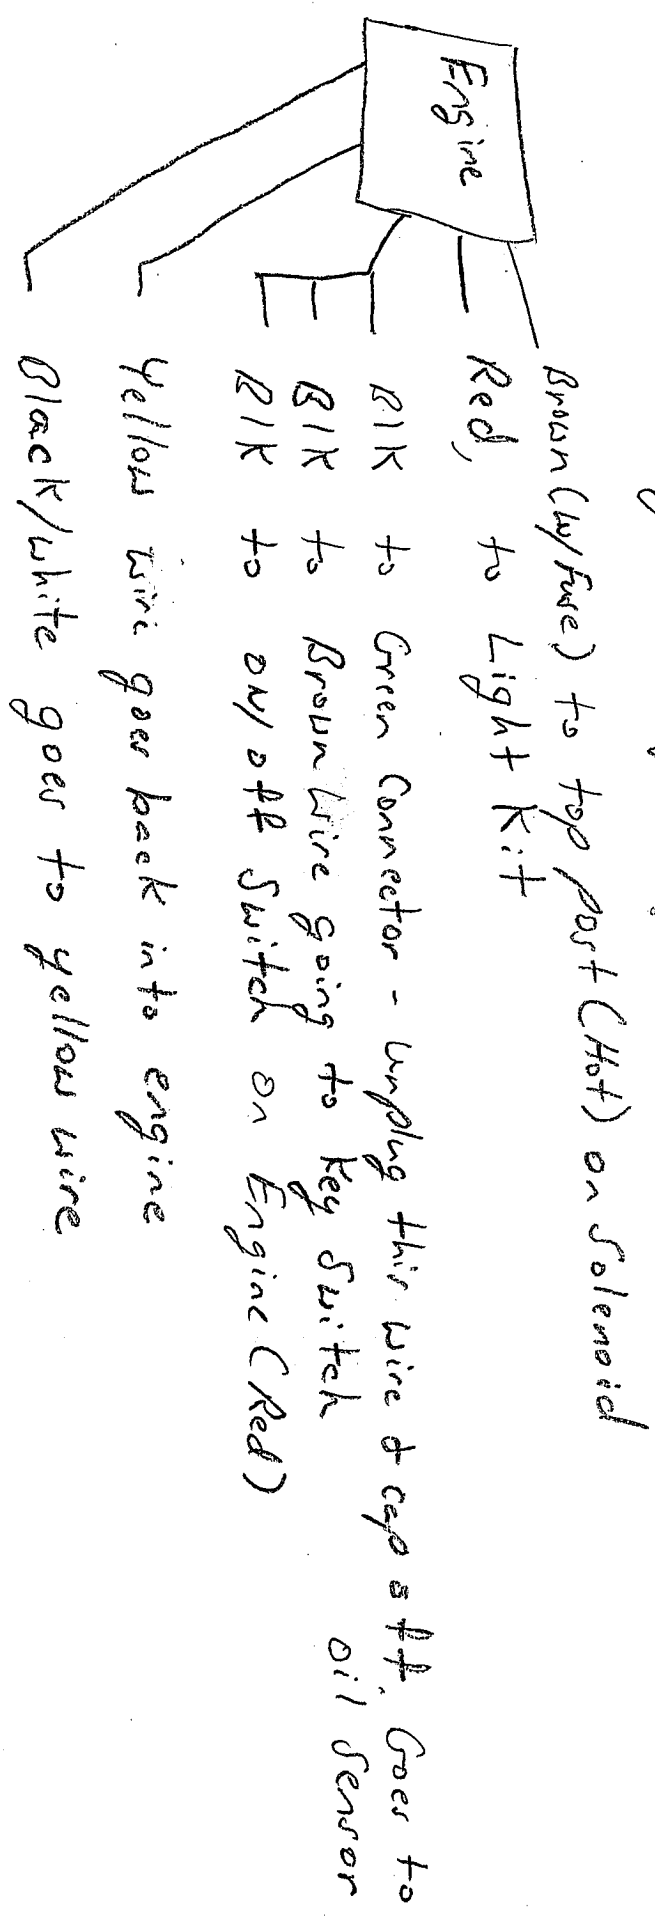 Engine
Brown (w/fuse) to top post (Hot) on Solenoid
Red, to Light Kit
Blk to Green Connector - Unplug this wire & cap off. Goes to
oil sensor
Blk to Brown wire going to key switch
Blk to ON/off Switch on Engine (Red)
Yellow wire goes back into engine
Black/white goes to yellow wire